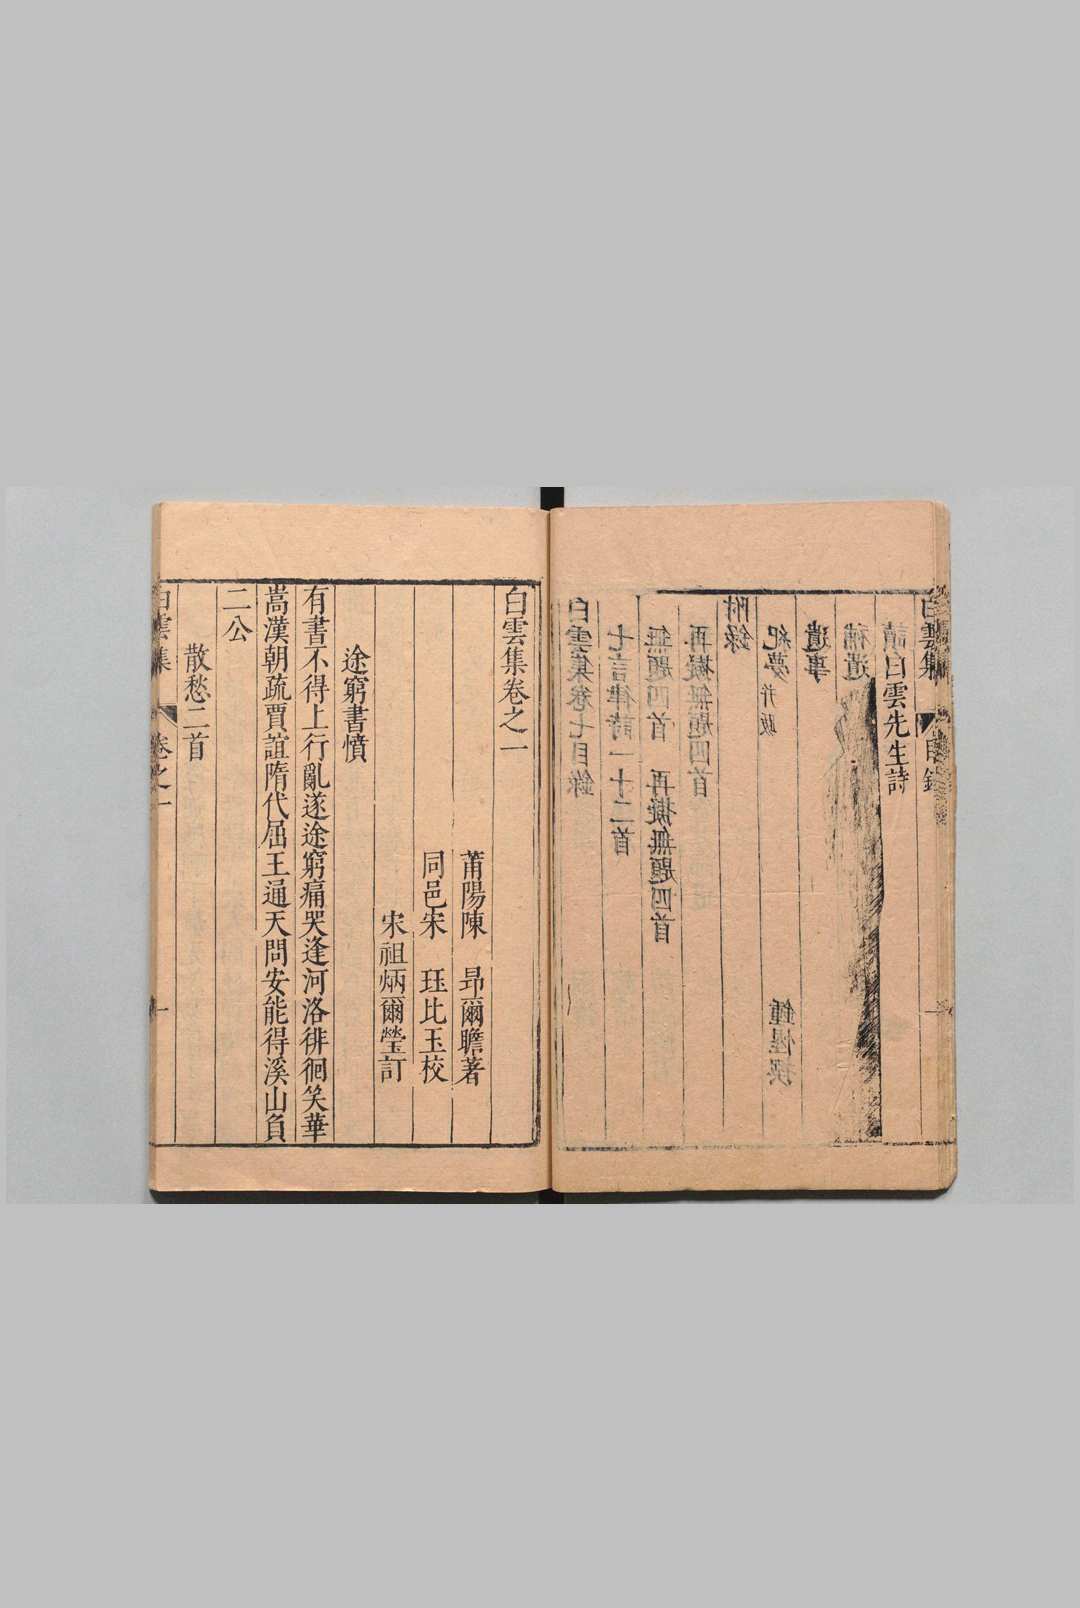 白雲集 目錄
讀白雲先生詩
補遺
遺事
紀夢 并跋 鍾惺撰
附錄
再擬無題四首
無題四首 再擬無題四首
七言律詩一十二首
白雲集卷七目錄
白雲集卷之一
莆陽陳 昂爾瞻著
同邑宋 珏比玉校
宋祖炳爾瑩訂
途窮書憤
有書不得上行亂遂途窮痛哭逢河洛徘徊笑華
嵩漢朝疏賈誼隋代屈王通天問安能得溪山負
二公
散愁二首
白雲集 卷之一 一